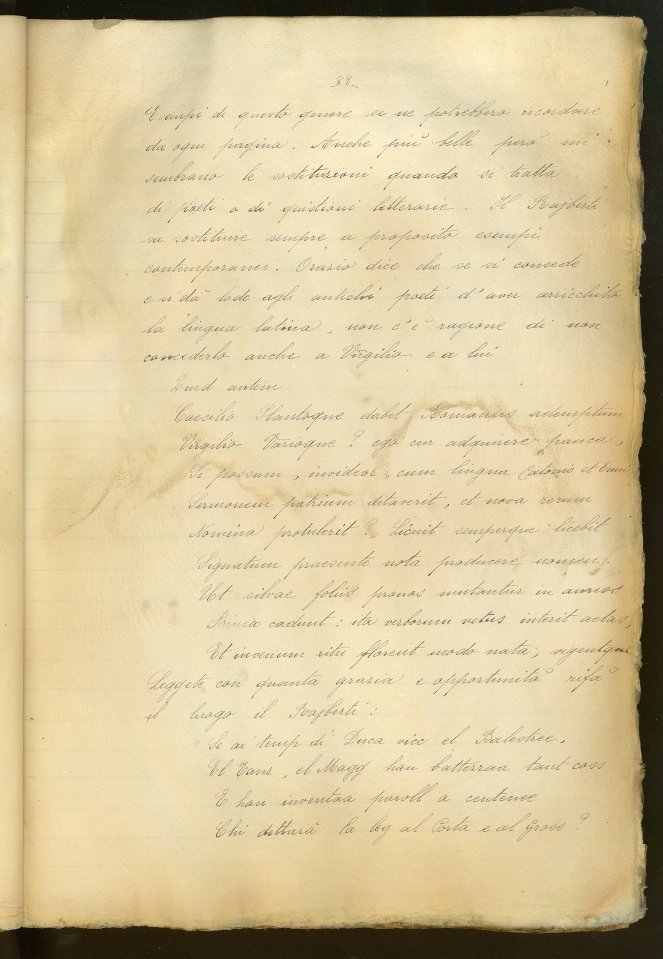 -88-
Esempi di questo genere se ne potrebbero ricordare
da ogni pagina. Anche più belle però mi
sembrano le sostituzioni quando si tratta
di poeti o di quistioni letterarie. Il Rajberti
va sostituire sempre a proposito esempi
contemporanei. Orazio dice che se si concede
e si dà lode agli antichi poeti d'aver arricchito
la lingua latina, non c'è ragione di non
concederlo anche a Virgilio e a lui
Quid autem
Caecilio Plautoque dabit Romanus ademptum
Virgilio Varioque? ego cur adquirere pauca,
Si possum, invideor, cum lingua Catonis et Enni
Sermonem patrium ditaverit, et nova rerum
Nomina protulerit? Licuit semperque licebit
Signatum praesente nota producere nomen.
Ut silvae foliis pronos mutantur in annos
Prima cadunt: ita verborum vetus interit aetas,
Ut iuvenum ritu florent modo nata, vigentque
Leggete con quanta grazia e opportunità rifà
il luogo il Rajberti:
Se ai temp di Duca vicc el Balestree,
El Tanz, el Magg han battezzaa tant coss
E han inventaa paroll a centenee
Chi dittarà la leg al Porta e al Gross?